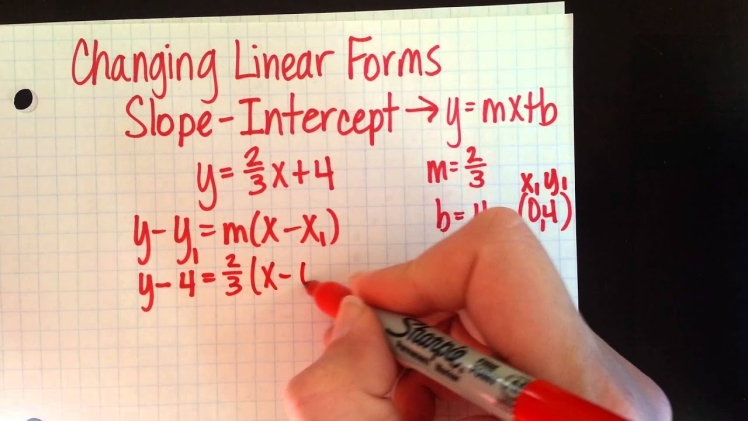 Changing Linear Forms
Slope-Intercept → y=mx+b
y=2/3x+4
m=2/3
x₁ y₁
b=4 (0,4)
y-y₁=m(x-x₁)
y-4=2/3(x-
Sharpie
FINE